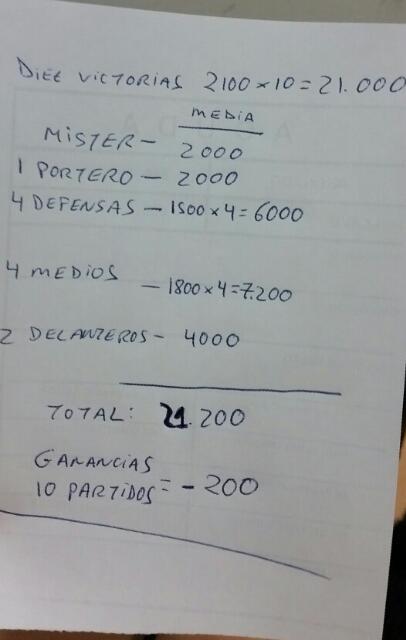 DIEZ VICTORIAS 2100 x 10 = 21.000
MEDIA
MISTER - 2000
1 PORTERO - 2000
4 DEFENSAS - 1500 x 4 = 6000
4 MEDIOS - 1800 x 4 = 7.200
2 DELANTEROS - 4000
TOTAL: 21.200
GANANCIAS
10 PARTIDOS = - 200